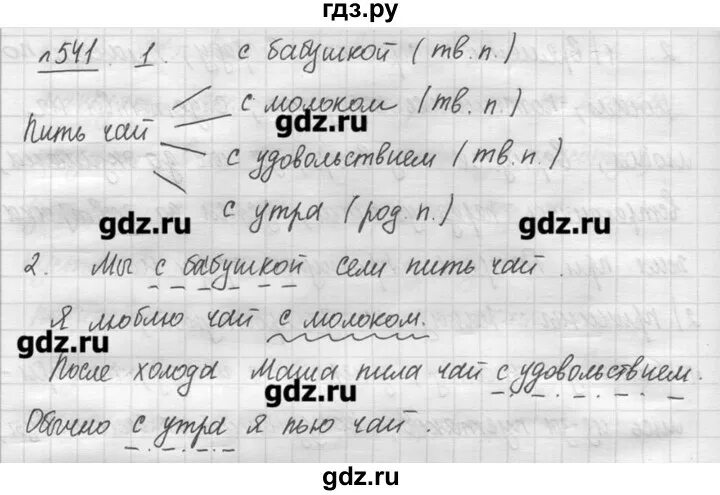 гдз.ру
п541. 1. с бабушкой (тв.п.)
с молоком (тв.п.)
gdz.ru
Пить чай
с удовольствием (тв.п.)
с утра (род.п.)
gdz.ru gdz.ru
2. Мы с бабушкой сели пить чай.
Я люблю чай с молоком.
gdz.ru
После холода Маша пила чай с удовольствием.
gdz.ru
Обычно с утра я пью чай.
gdz.ru